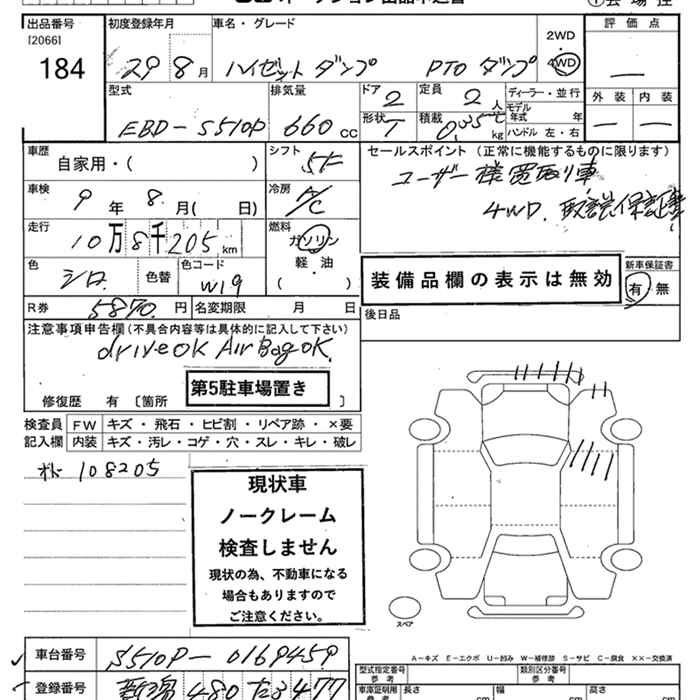 出品番号 初度登録年月 車名・グレード 評価点
[2066]
184
29 8月 ハイゼット ダンプ PTO ダンプ 2WD 4WD
型式 排気量 ドア 定員 ディーラー・並行 外装 内装
EBD-S510P 660cc 2 2人 モデル年式 年
形状 T 積載 kg ハンドル 左・右
車歴 シフト セールスポイント(正常に機能するものに限ります)
自家用・( ) 5F ユーザー様買取り車
車検 冷房 4WD. 取説保証書
9年 8月( 日) A/C
走行 燃料
10万8千205km ガソリン 軽・油 ( )
色 色替 色コード 装備品欄の表示は無効 新車保証書
シロ W19 有 無
R券 5870円 名変期限 月 日 後日品
注意事項申告欄(不具合内容等は具体的に記入して下さい)
drive OK Air Bag OK
修復歴 有 〔箇所 第5駐車場置き 〕
検査員 FW キズ・飛石・ヒビ割・リペア跡・×要
記入欄 内装 キズ・汚レ・コゲ・穴・スレ・キレ・破レ
108205
現状車
ノークレーム
検査しません
現状の為、不動車になる
場合もありますので
ご注意ください。
スペア
A-キズ E-エクボ U-凹み W-補修跡 S-サビ C-腐食 ××-交換済
車台番号 S510P-0169459
型式指定番号 参考 類別区分番号 参考
登録番号 480 た 3477
車庫証明用 参考 長さ cm 幅 cm 高さ cm